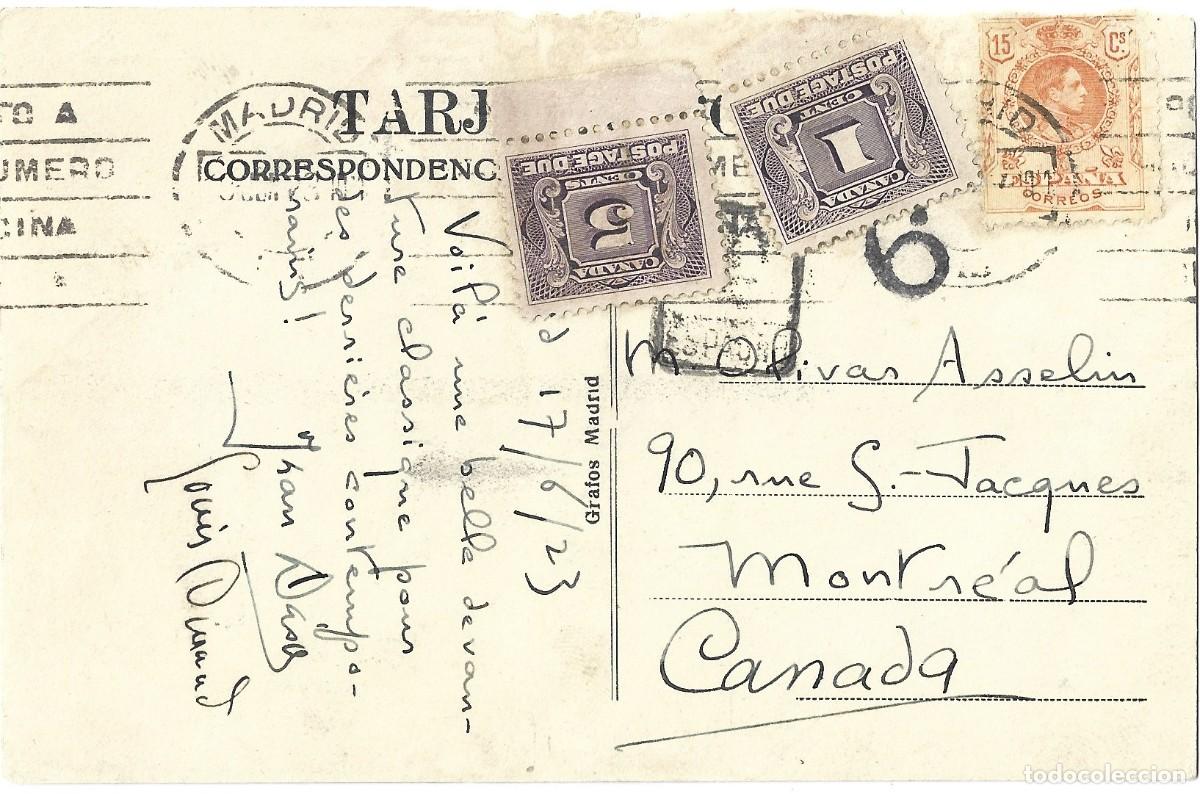 TARJ
CORRESPONDENC
MADRID
TO A
UMERO
CINA
POSTAGE DUE
5
CENTS
CANADA
POSTAGE DUE
1
CENT
CANADA
15 Cs.
ESPAÑA
CORREOS
6
ESPAÑA
17/6/23
Voilà une belle devan-
ture classique pour
les derrières contempo-
rains!
Jean Dasé
Louis Durand
Grafos Madrid
M. Olivar Asselin
90, rue S.-Jacques
Montréal
Canada
todocoleccion